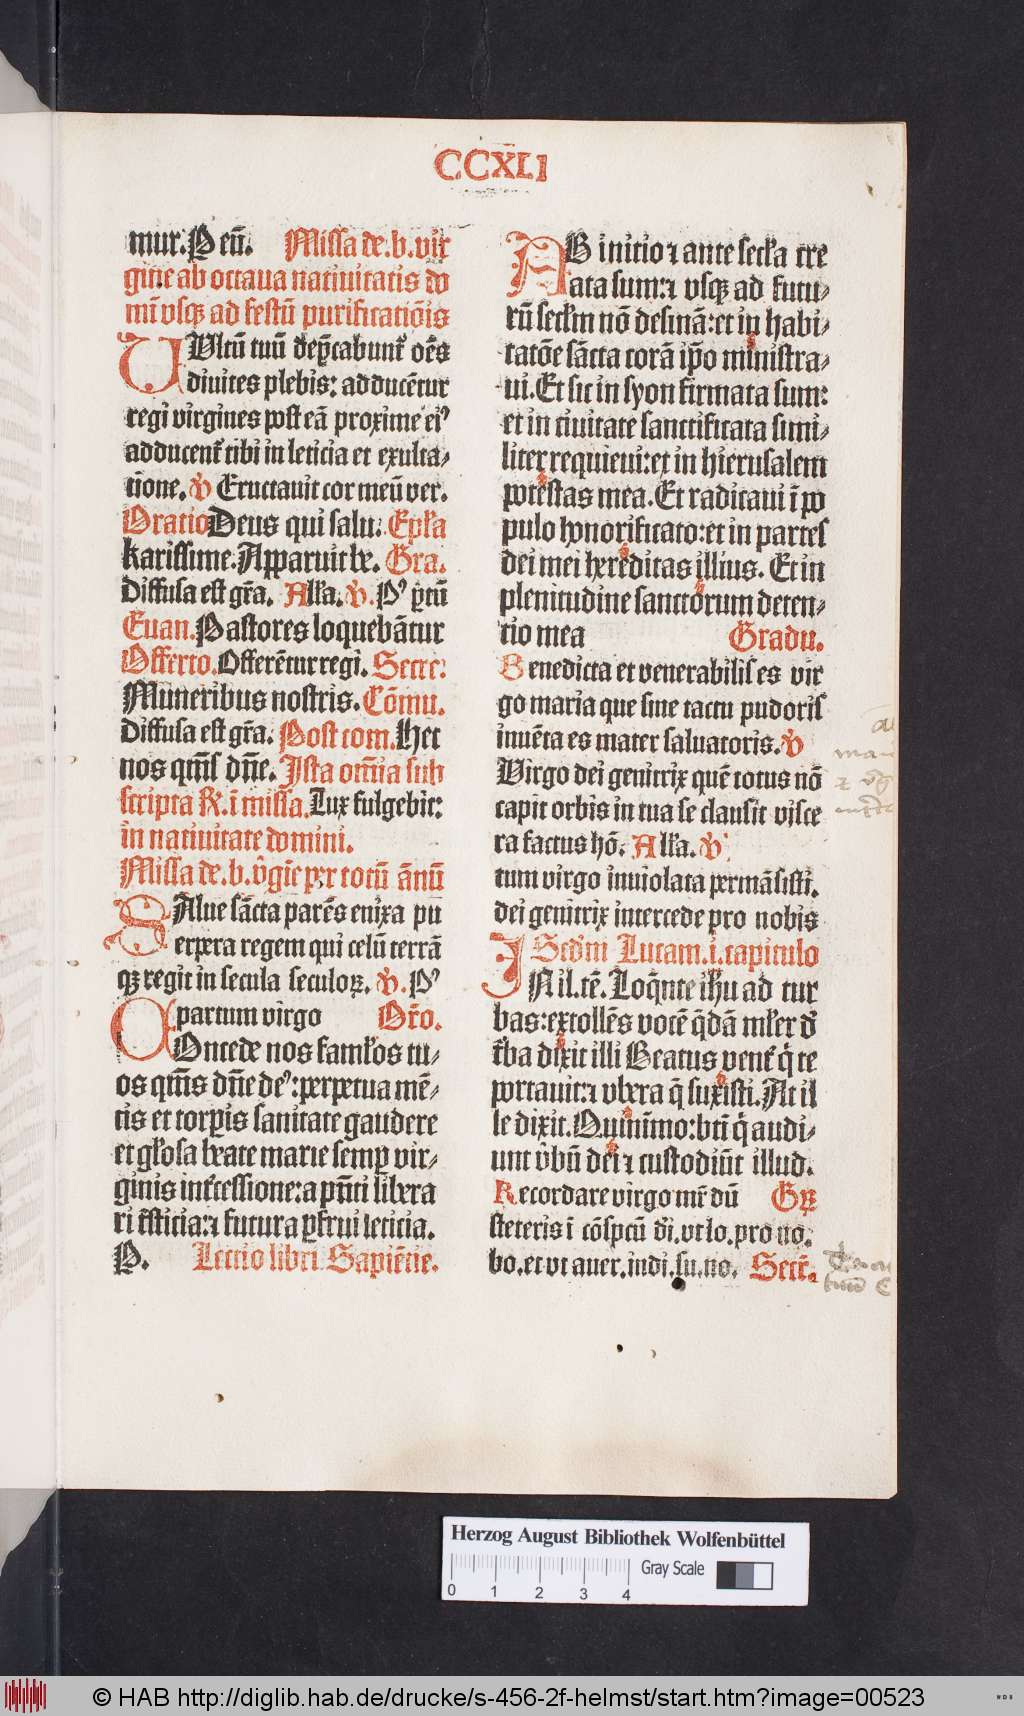 CCXLI
mur. P eū. Missa de. b. vir
gine ab octaua natiuitatis do
mī vsqꝫ ad festū purificatiōis
VUltū tuū dep̄cabunt᷑ oēs
diuites plebis: adducētur
regi virgines post eā proxime eiꝰ
adducent᷑ tibi in leticia et exulta⸗
tione. ℣ Eructauit cor meū ver.
Oratio Deus qui salu. Ep̄ła
karissime. Apparuit be. Gra.
Diffusa est gr̄a. Alła. ℣. Pꝰ ꝑtū
Euan. Pastores loquebātur
Offerto. Offerētur regi. Secre:
Muneribus nostris. Cōmu.
Diffusa est gr̄a. Post com. Hec
nos qm̄s dn̄e. Ista om̄ia sub
scripta ꝶ. ī missa. Lux fulgebit:
in natiuitate domini.
Missa de. b. v̄gīe per totū ānū
SAlue sācta parēs enixa pu
erpera regem qui celū terrā
qꝫ regit in secula seculoꝝ. ℣. Pꝰ
partum virgo Or̄o.
COncede nos famłos tu⸗
os qm̄s dn̄e deꝰ: perpetua mē⸗
tis et corꝑis sanitate gaudere
et głosa beate marie semꝑ vir⸗
ginis int᷑cessione: a pn̄ti libera
ri t᷑sticia: ⁊ futura ꝑfrui leticia.
P. Lectio libri Sapiētie.
AB initio ⁊ ante secła cre
ata sum: ⁊ vsqꝫ ad futu⸗
rū secłm nō desinā: et in habi⸗
tatōe sācta corā ip̄o ministra⸗
ui. Et sic in syon firmata sum:
et in ciuitate sanctificata simi⸗
liter requieui: et in hierusalem
potestas mea. Et radicaui ī po
pulo honorificato: et in partes
dei mei hereditas illius. Et in
plenitudine sanctorum deten⸗
tio mea Gradu.
Benedicta et venerabilis es vir
go maria que sine tactu pudoris
inuēta es mater saluatoris. ℣
Virgo dei genitrix quē totus nō
capit orbis in tua se clausit visce
ra factus hō. Alła. ℣
tum virgo inuiolata permāsisti.
dei genitrix intercede pro nobis
Scd̄m Lucam. i. capitulo
IN il. tē. Loq̄nte ih̄u ad tur
bas: extollēs vocē q̄dā młier d᷑
t᷑ba dixit illi Beatus vent᷑ q̄ te
portauit: ⁊ vbera q̄ suxisti. At il
le dixit. Quinīmo: bt̄i q̄ audi⸗
unt v̄bū dei ⁊ custodiūt illud.
Recordare virgo mr̄ dū Gꝝ
steteris ī cōspcū d̄i. vt lo. pro no.
bo. et vt auer. indi. su. no. Secr̄.
Herzog August Bibliothek Wolfenbüttel
Gray Scale
0 1 2 3 4
© HAB http://diglib.hab.de/drucke/s-456-2f-helmst/start.htm?image=00523